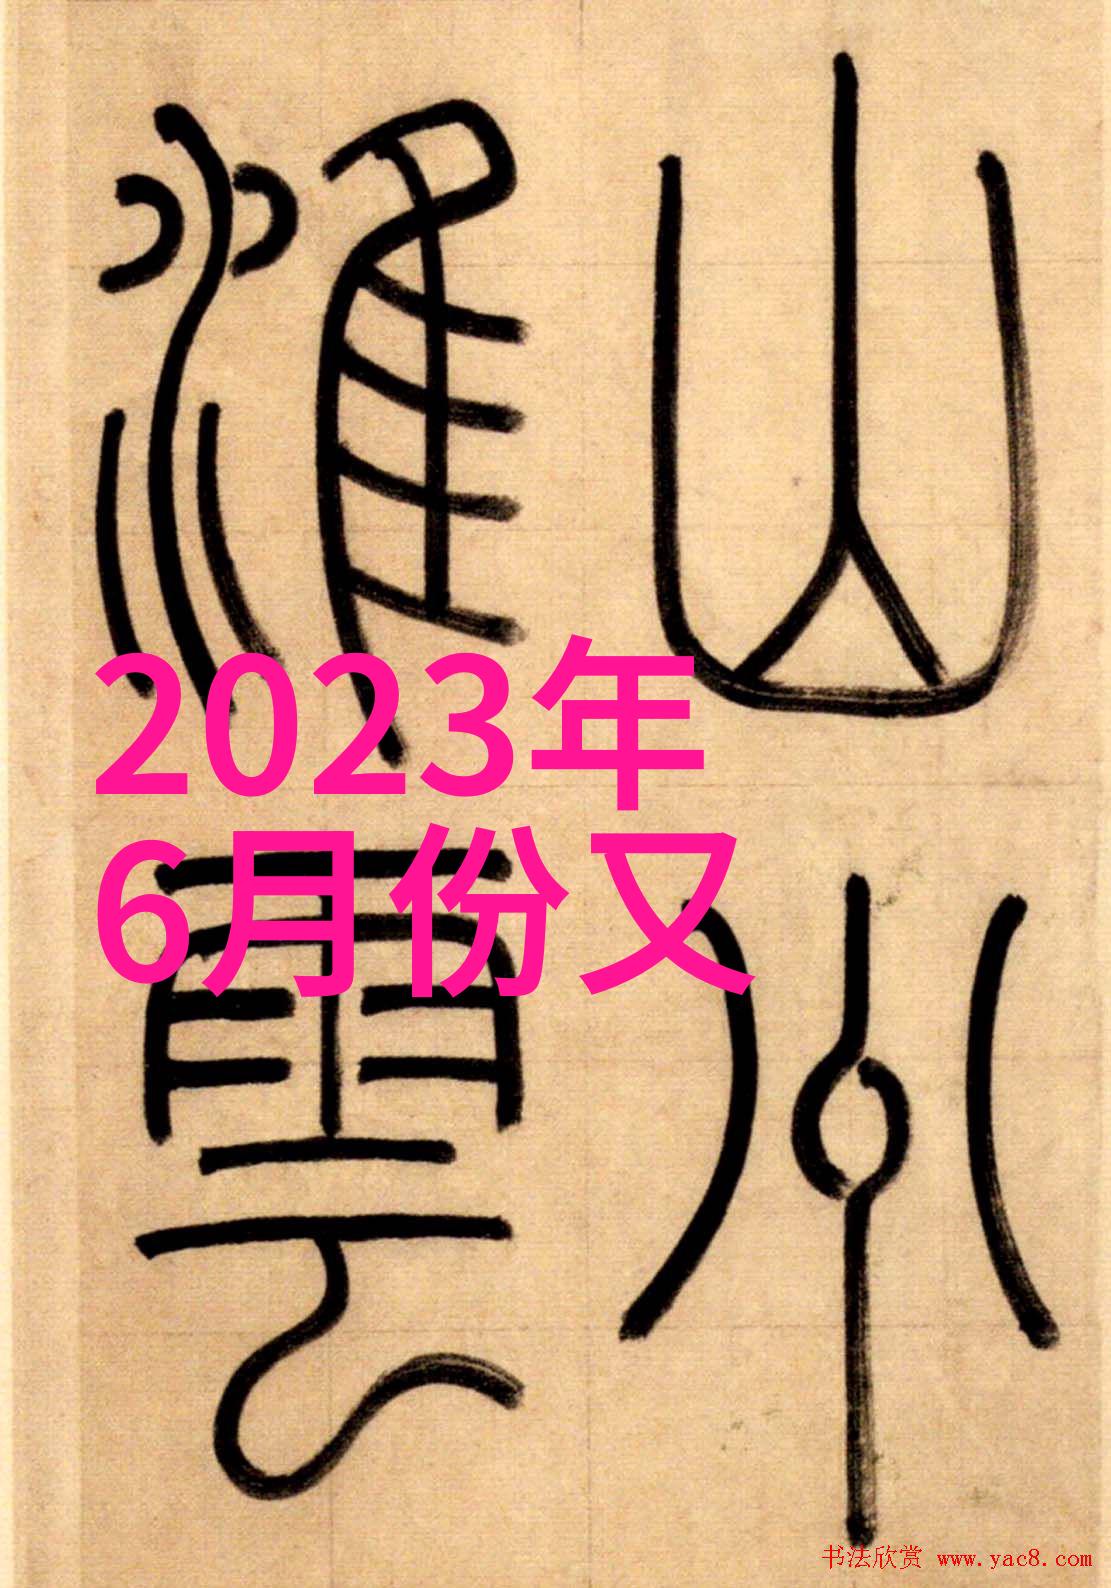 山州
淮雲
2023年
6月份又
书法欣赏 www.yac8.com